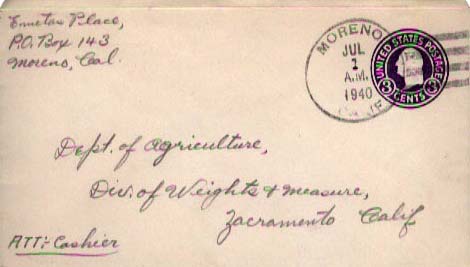 Place,
P.O. Box 143
Moreno, Cal.
MORENO
JUL
1
A.M.
1940
CALIF
UNITED STATES POSTAGE
3 CENTS 3
Dept. of Agriculture,
Div. of Weights & Measure,
Sacramento Calif
ATT:- Cashier